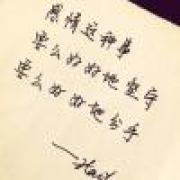 感情这种事
要么好好地坚守
要么好好地分手